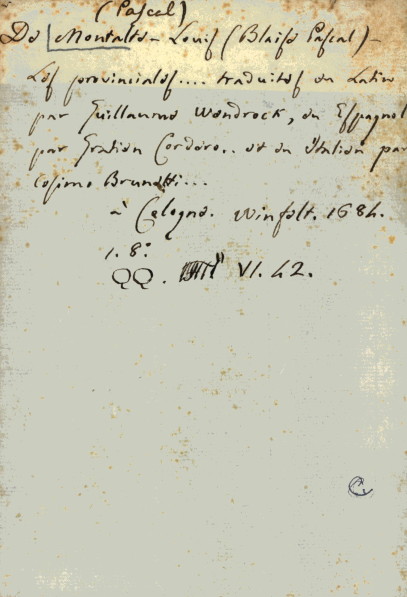 (Pascal)
De Montalte - Louis (Blaise Pascal) -
Les provinciales.... traduites en Latin
par Guillaume Wendrock, en Espagnol
par Gratien Cordero.. et en Italien par
Cosimo Brunetti...
à Cologne. Winfelt. 1684.
1. 8.°
QQ. VI. 42.